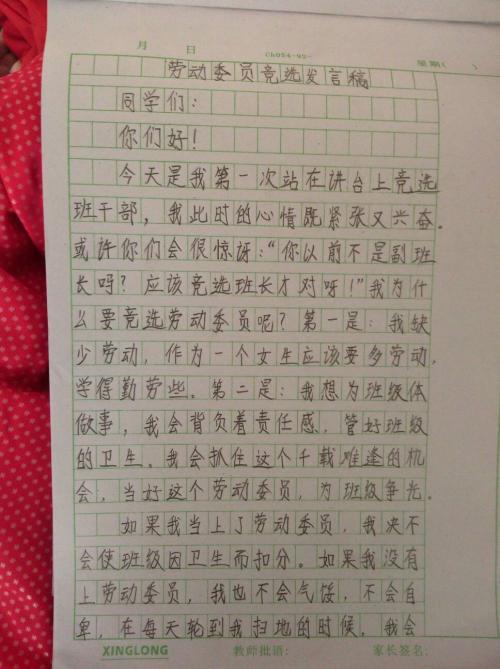 月 日 Ch054-92- 星期( )
劳动委员竞选发言稿
同学们：
你们好！
今天是我第一次站在讲台上竞选
班干部，我此时的心情既紧张又兴奋。
或许你们会很惊讶：“你以前不是副班
长吗？应该竞选班长才对呀！”我为什
么要竞选劳动委员呢？第一是：我缺
少劳动，作为一个女生应该要多劳动，
学得勤劳些。第二是：我想为班级体
做事，我会背负着责任感，管好班级
的卫生。我会抓住这个千载难逢的机
会，当好这个劳动委员，为班级争光。
如果我当上了劳动委员，我决不
会使班级因卫生而扣分。如果我没有
上劳动委员，我也不会气馁，不会自
卑，在每天轮到我扫地的时候，我会
XINGLONG 教师批语： 家长签名：